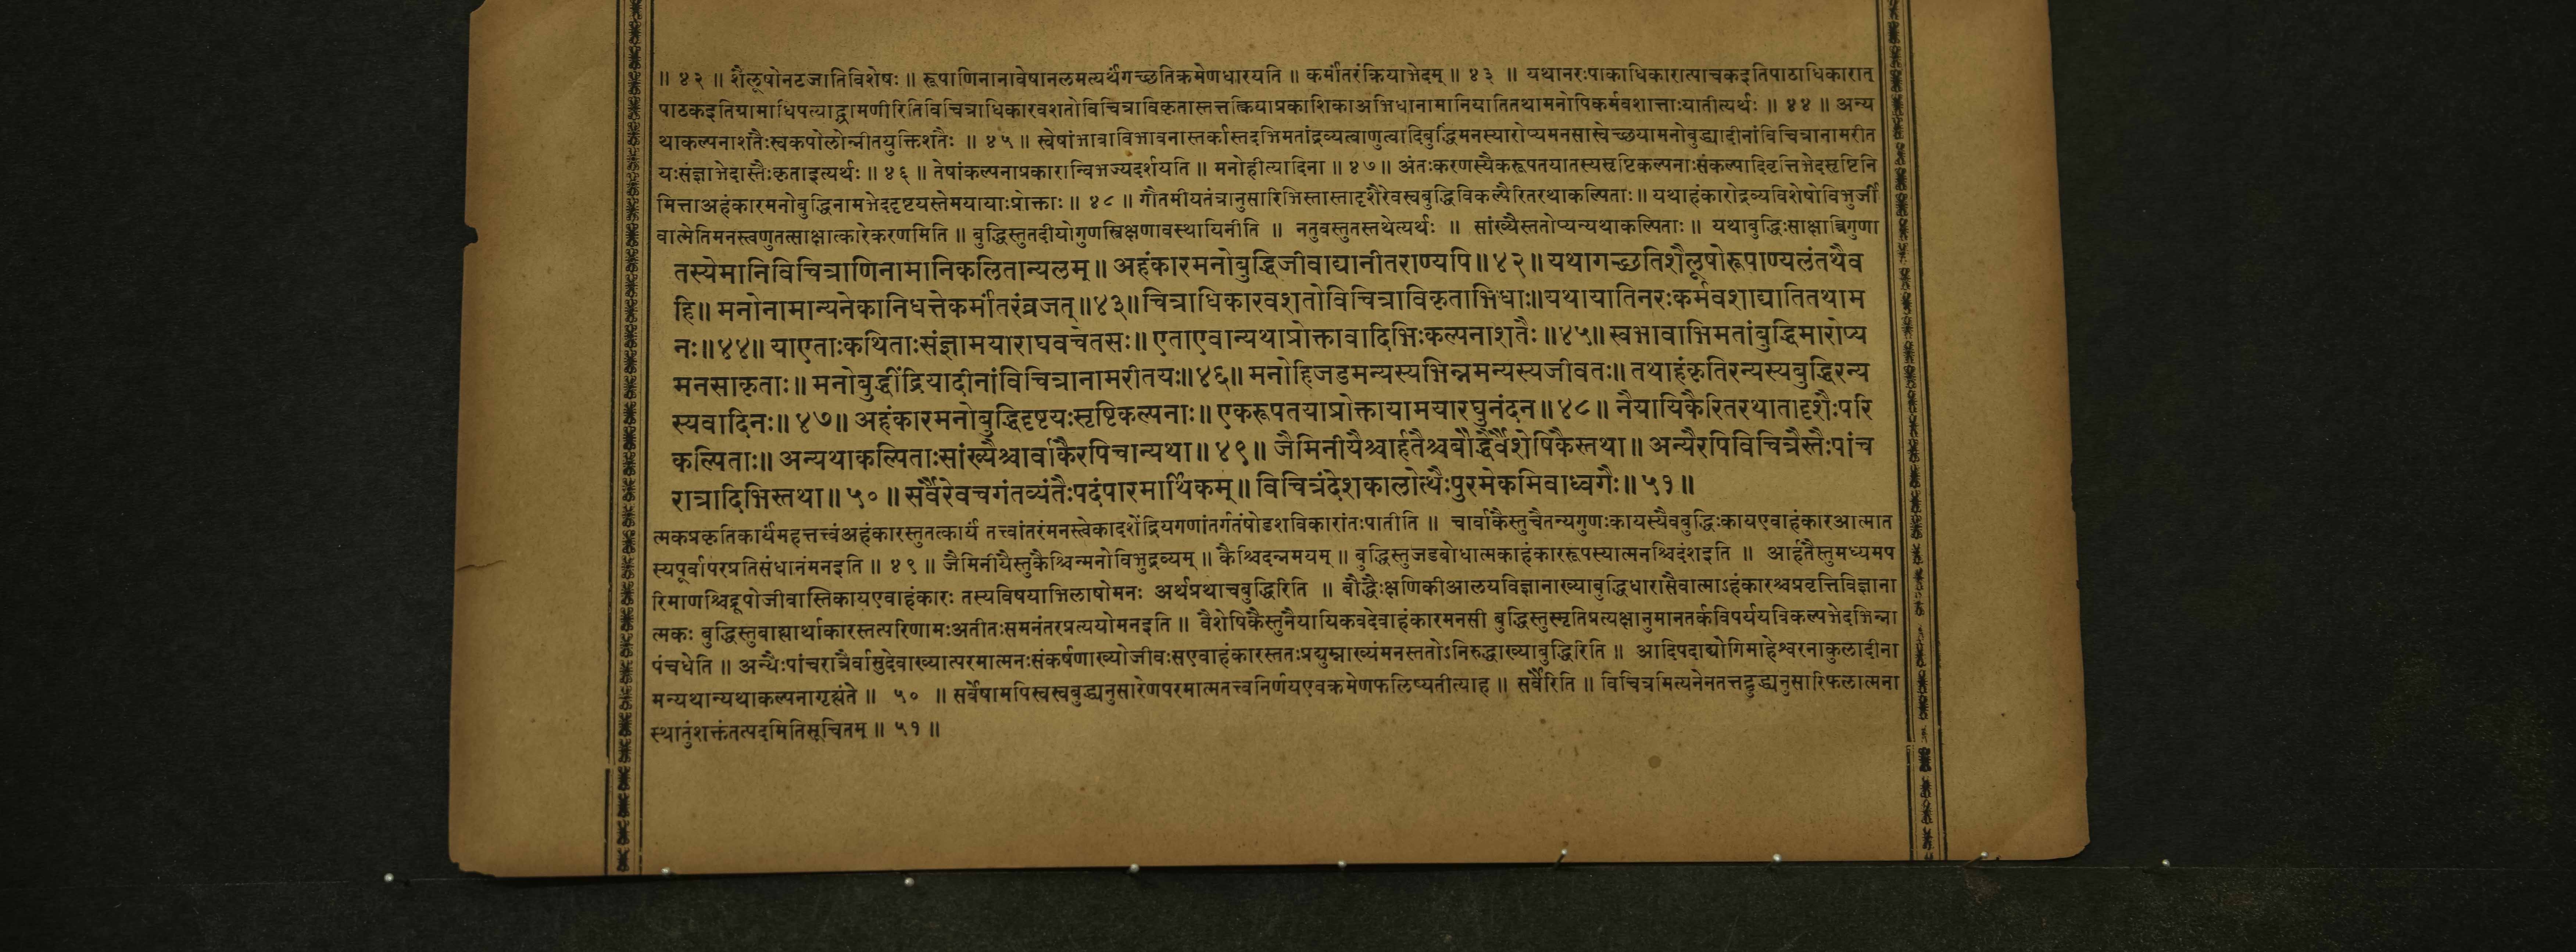 ॥ ४२ ॥ शैलूषोनटजातिविशेषः ॥ रूपाणिनानावेषानलमत्यर्थंगच्छतिक्रमेणधारयति ॥ कर्मांतरंक्रियाभेदम् ॥ ४३ ॥ यथानरःपाकाधिकारात्पाचकइतिपाठाधिकारात्
पाठकइतिग्रामाधिपत्याद्ग्रामणीरितिविचित्राधिकारवशतोविचित्राविकृतास्तत्तत्क्रियाप्रकाशिकाअभिधानामानियातितथामनोपिकर्मवशात्ताःयातीत्यर्थः ॥ ४४ ॥ अन्य
थाकल्पनाशतैःस्वकपोलोन्नीतयुक्तिशतैः ॥ ४५ ॥ स्वेषांभावाविभावनास्तर्कास्तदभिमतांद्रव्यत्वाणुत्वादिबुद्धिमनस्यारोप्यमनसास्वेच्छयामनोबुद्ध्यादीनांविचित्रानामरीत
यःसंज्ञाभेदास्तैःकृताइत्यर्थः ॥ ४६ ॥ तेषांकल्पनाप्रकारान्विभज्यदर्शयति ॥ मनोहीत्यादिना ॥ ४७ ॥ अंतःकरणस्यैकरूपतयातस्यसृष्टिकल्पनाःसंकल्पादिवृत्तिभेदसृष्टिनि
मित्ताअहंकारमनोबुद्धिनामभेददृष्टयस्तेमयायाःप्रोक्ताः ॥ ४८ ॥ गौतमीयतंत्रानुसारिभिस्तास्तादृशैरेवस्वबुद्धिविकल्पैरितरथाकल्पिताः ॥ यथाहंकारोद्रव्यविशेषोविभुर्जी
वात्मेतिमनस्त्वणुतत्साक्षात्कारेकरणमिति ॥ बुद्धिस्तुतदीयोगुणस्त्रिक्षणावस्थायिनीति ॥ नतुवस्तुतस्तथेत्यर्थः ॥ सांख्यैस्ततोप्यन्यथाकल्पिताः ॥ यथाबुद्धिःसाक्षात्त्रिगुणा
तस्येमानिविचित्राणिनामानिकलितान्यलम् ॥ अहंकारमनोबुद्धिजीवाद्यानीतराण्यपि ॥ ४२ ॥ यथागच्छतिशैलूषोरूपाण्यलंतथैव
हि ॥ मनोनामान्यनेकानिधत्तेकर्मांतरंव्रजत् ॥ ४३ ॥ चित्राधिकारवशतोविचित्राविकृताभिधाः ॥ यथायातिनरःकर्मवशाद्यातितथाम
नः ॥ ४४ ॥ याएताःकथिताःसंज्ञामयाराघवचेतसः ॥ एताएवान्यथाप्रोक्तावादिभिःकल्पनाशतैः ॥ ४५ ॥ स्वभावाभिमतांबुद्धिमारोप्य
मनसाकृताः ॥ मनोबुद्धींद्रियादीनांविचित्रानामरीतयः ॥ ४६ ॥ मनोहिजडमन्यस्यभिन्नमन्यस्यजीवतः ॥ तथाहंकृतिरन्यस्यबुद्धिरन्य
स्यवादिनः ॥ ४७ ॥ अहंकारमनोबुद्धिदृष्टयःसृष्टिकल्पनाः ॥ एकरूपतयाप्रोक्तायामयारघुनंदन ॥ ४८ ॥ नैयायिकैरितरथातादृशैःपरि
कल्पिताः ॥ अन्यथाकल्पिताःसांख्यैश्चार्वाकैरपिचान्यथा ॥ ४९ ॥ जैमिनीयैश्चार्हतैश्चबौद्धैर्वैशेषिकैस्तथा ॥ अन्यैरपिविचित्रैस्तैःपांच
रात्रादिभिस्तथा ॥ ५० ॥ सर्वैरेवचगंतव्यंतैःपदंपारमार्थिकम् ॥ विचित्रंदेशकालोत्थैःपुरमेकमिवाध्वगैः ॥ ५१ ॥
त्मकप्रकृतिकार्यंमहत्तत्त्वंअहंकारस्तुतत्कार्यं तत्त्वांतरंमनस्त्वेकादशेंद्रियगणांतर्गतंषोडशविकारांतःपातीति ॥ चार्वाकैस्तुचैतन्यगुणःकायस्यैवबुद्धिःकायएवाहंकारआत्मात
स्यपूर्वापरप्रतिसंधानंमनइति ॥ ४९ ॥ जैमिनीयैस्तुकैश्चिन्मनोविभुद्रव्यम् ॥ कैश्चिदन्नमयम् ॥ बुद्धिस्तुजडबोधात्मकाहंकाररूपस्यात्मनश्चिदंशइति ॥ आर्हतैस्तुमध्यमप
रिमाणश्चिद्रूपोजीवास्तिकायएवाहंकारः तस्यविषयाभिलाषोमनः अर्थप्रथाचबुद्धिरिति ॥ बौद्धैःक्षणिकीआलयविज्ञानाख्याबुद्धिधारासैवात्माऽहंकारश्चप्रवृत्तिविज्ञाना
त्मकः बुद्धिस्तुबाह्यार्थाकारस्तत्परिणामःअतीतःसमनंतरप्रत्ययोमनइति ॥ वैशेषिकैस्तुनैयायिकवदेवाहंकारमनसी बुद्धिस्तुस्मृतिप्रत्यक्षानुमानतर्कविपर्ययविकल्पभेदभिन्ना
पंचधेति ॥ अन्यैःपांचरात्रैर्वासुदेवाख्यात्परमात्मनःसंकर्षणाख्योजीवःसएवाहंकारस्ततःप्रद्युम्नाख्यंमनस्ततोऽनिरुद्धाख्याबुद्धिरिति ॥ आदिपदाद्योगिमाहेश्वरनाकुलादीना
मन्यथान्यथाकल्पनागृह्यंते ॥ ५० ॥ सर्वेषामपिस्वस्वबुद्ध्यनुसारेणपरमात्मतत्त्वनिर्णयएवक्रमेणफलिष्यतीत्याह ॥ सर्वैरिति ॥ विचित्रमित्यनेनतत्तद्बुद्ध्यनुसारिफलात्मना
स्थातुंशक्तंतत्पदमितिसूचितम् ॥ ५१ ॥